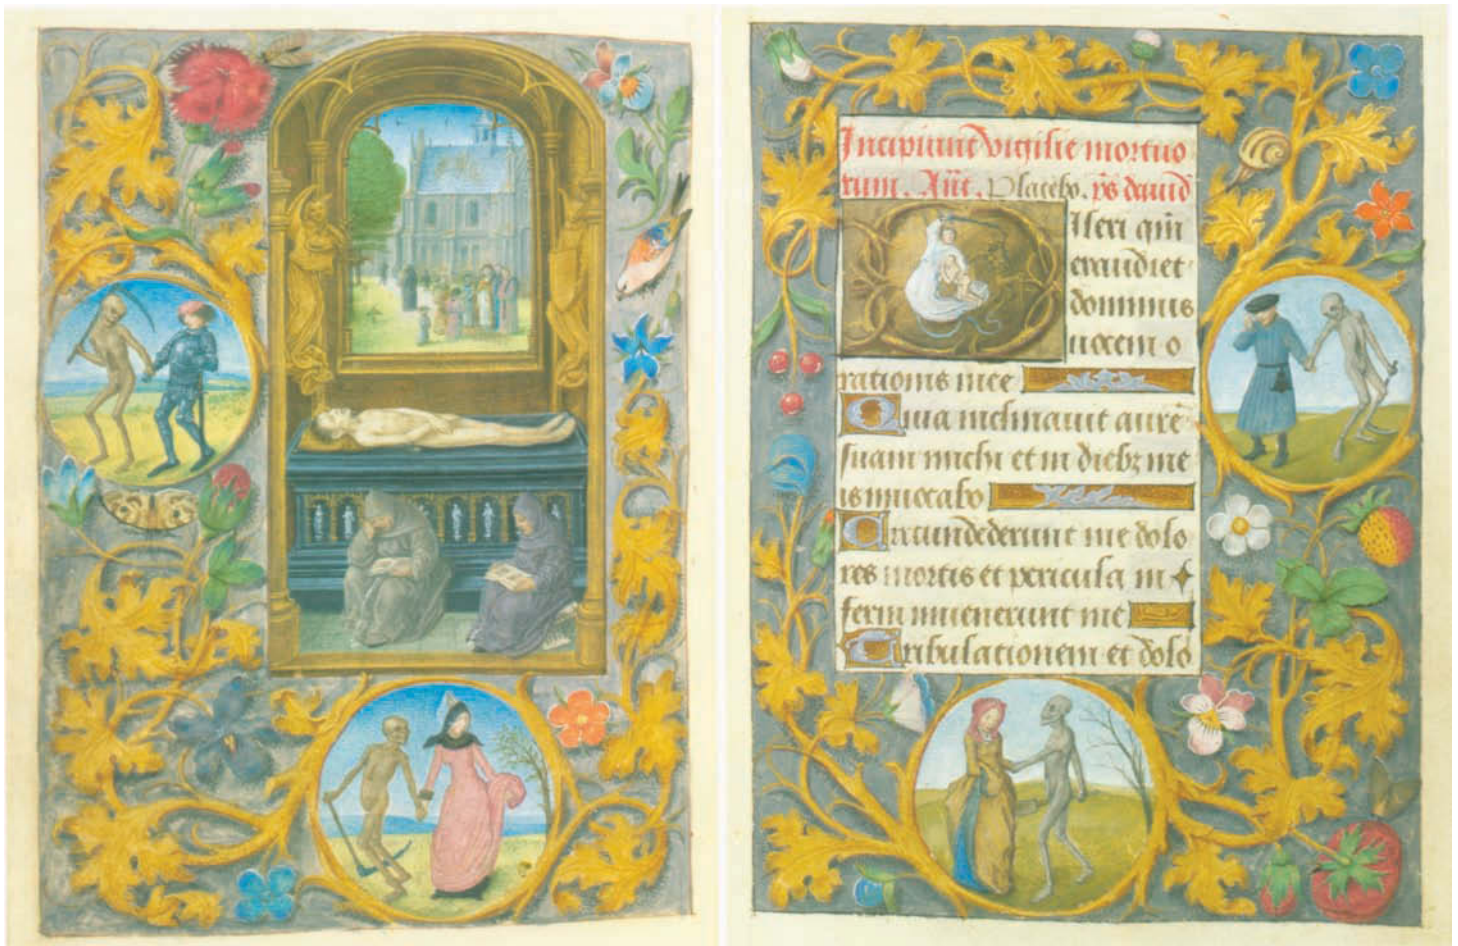 Incipiunt vigilie mortuo
rum. An̄t. Placebo. p̄s david
Ilexi qm̄
exaudiet
dominus
uocem o
rationis mee
Quia inclinauit aure
suam michi et in diebz me
is inuocabo
Circumdederunt me dolo
res mortis et pericula in
ferni inuenerunt me
Tribulationem et dolo